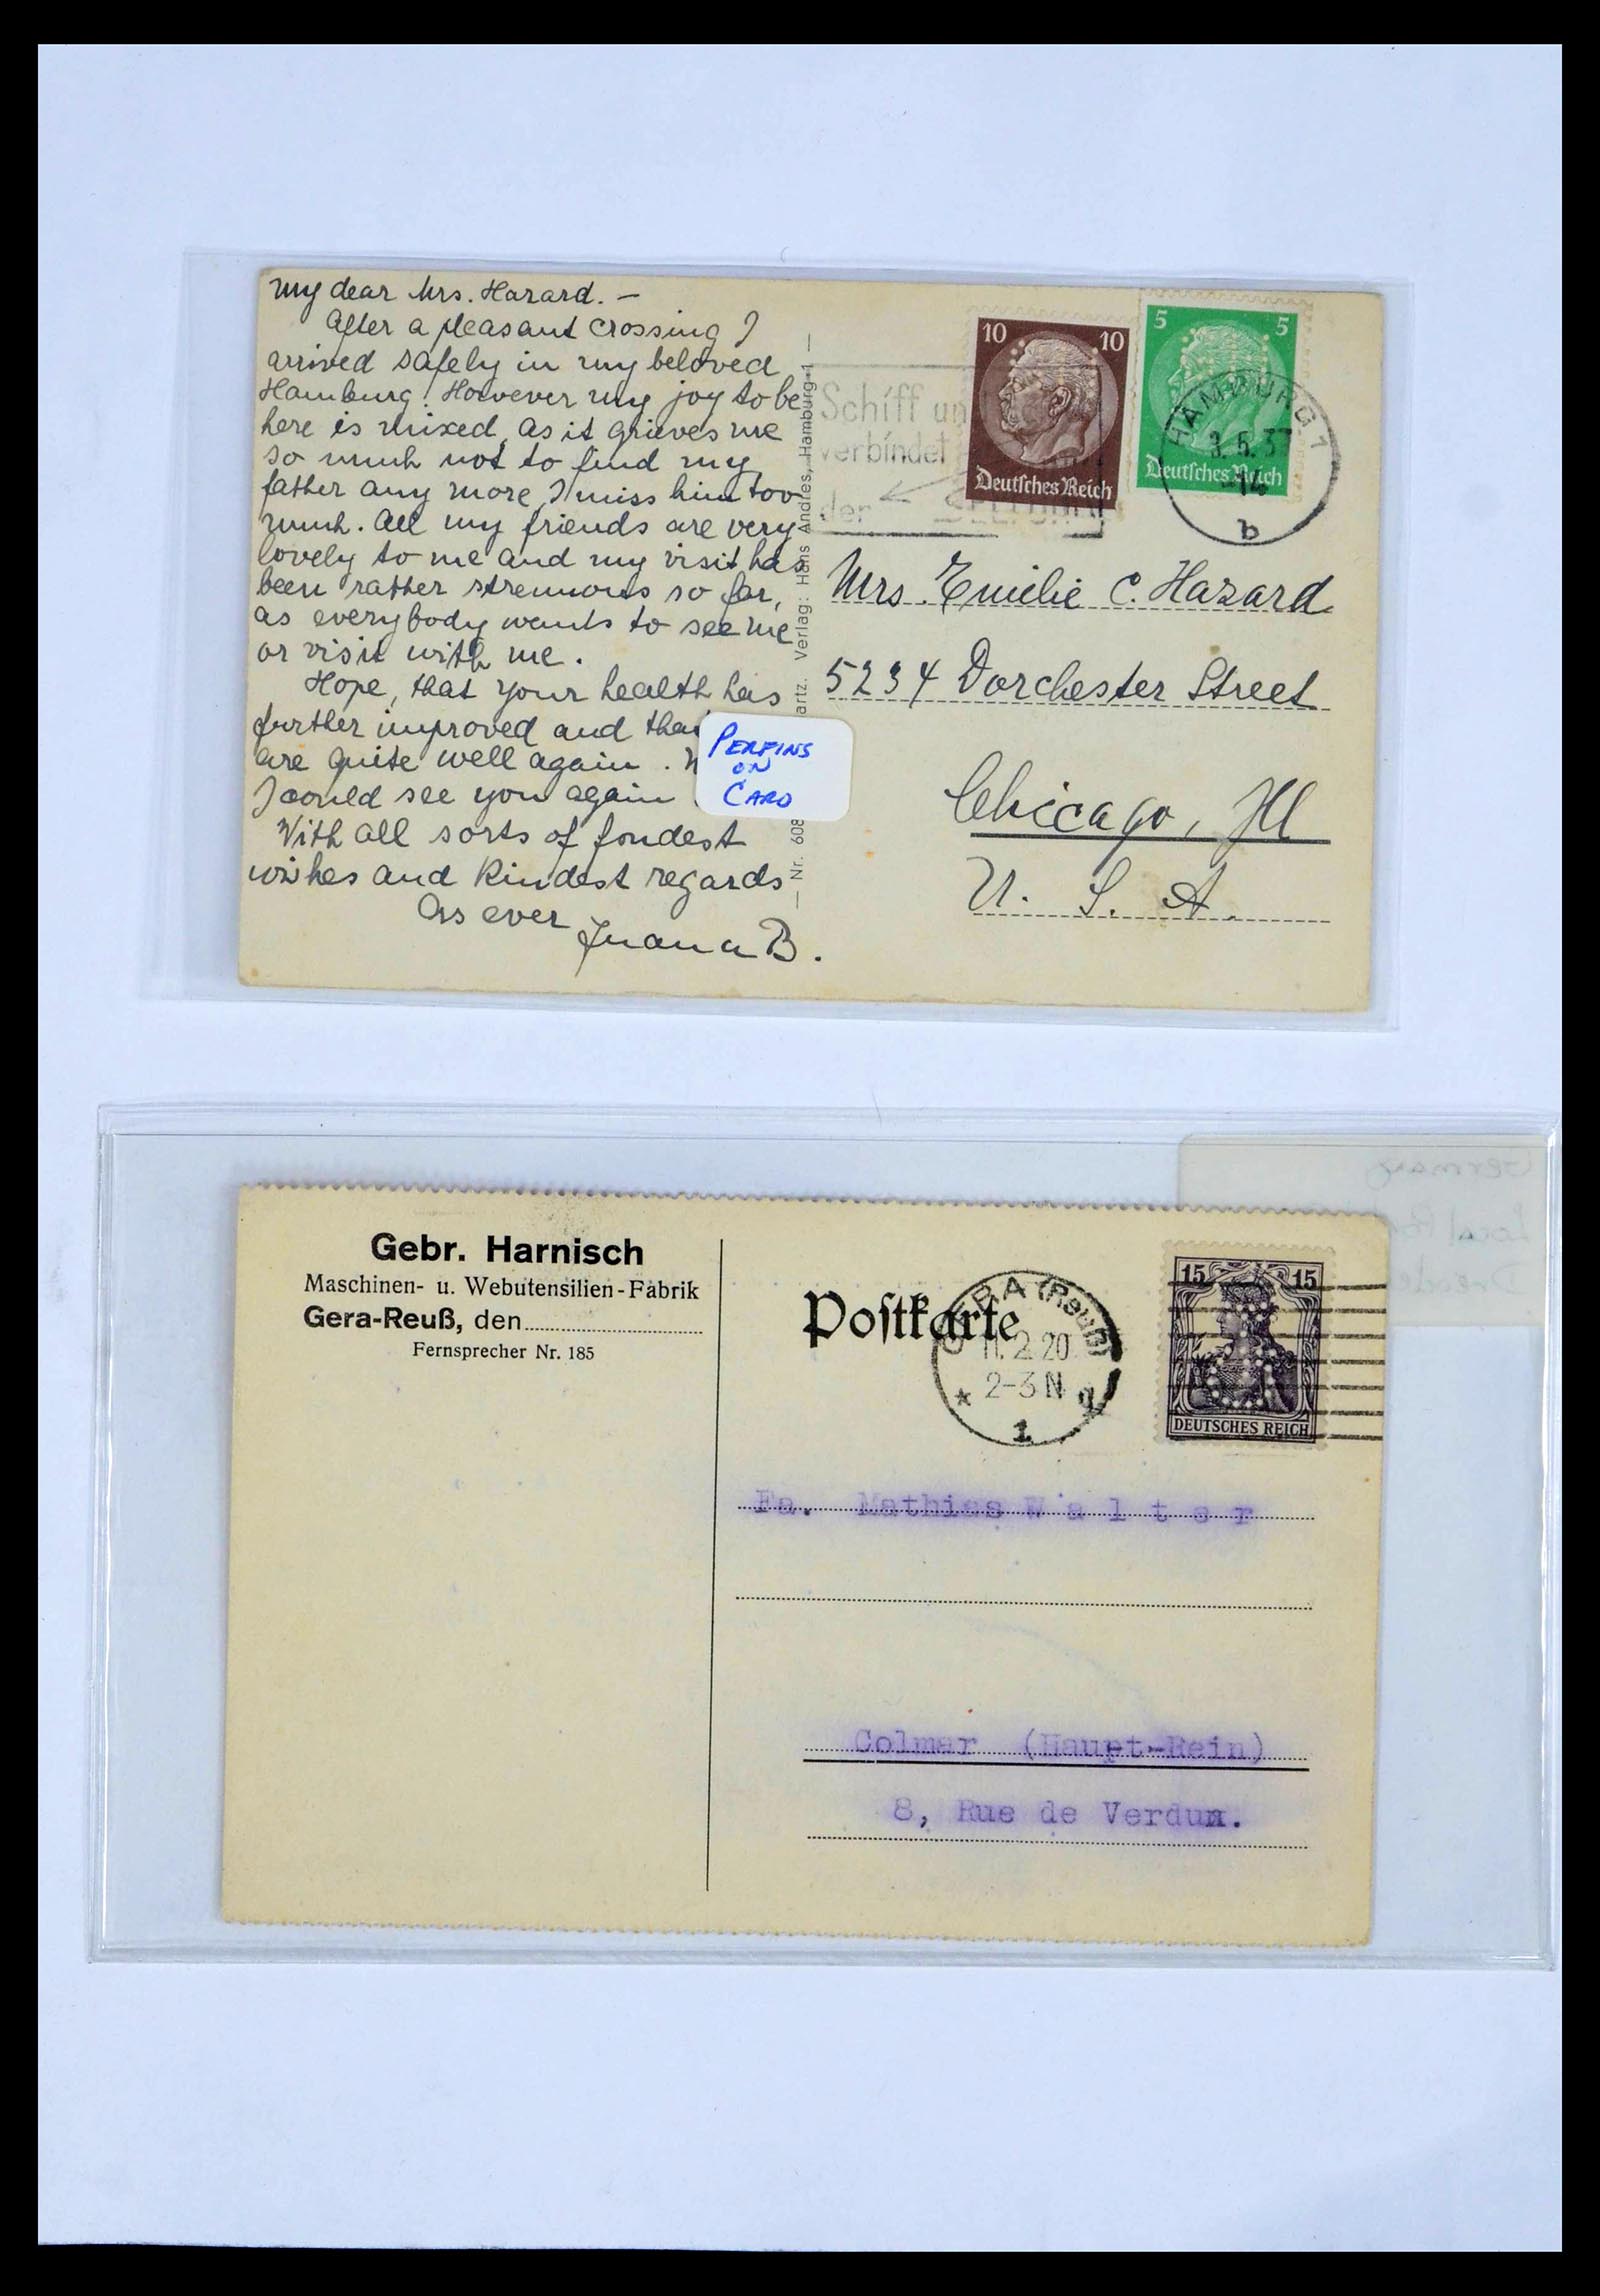 My dear Mrs. Hazard. –
After a pleasant crossing I
arrived safely in my beloved
Hamburg. However my joy to be
here is mixed, as it grieves me
so much not to find my
father any more, I miss him too
much. All my friends are very
lovely to me and my visit has
been rather strenuous so far,
as everybody wants to see me
or visit with me.
Hope, that your health has
further improved and
are quite well again.
I could see you again
With all sorts of fondest
wishes and kindest regards
As ever
Juana B.
Nr. 608
artz. Verlag: Hans Andres, Hamburg 1
PERFINS
ON
CARD
Schiff un
verbindet
der
10 10
Deutsches Reich
5 5
Deutsches Reich
HAMBURG 1
3.6.37
-14
b
Mrs. Emilie C. Hazard
5234 Dorchester Street
Chiccago, Ill
U. S. A.
Germany
Local
Gebr. Harnisch
Maschinen- u. Webutensilien-Fabrik
Gera-Reuß, den
Fernsprecher Nr. 185
Postkarte
GERA (Reuß)
11.2.20
2-3 N
* 1 g
15 15
DEUTSCHES REICH
Fa. Mathias W a l t e r
Colmar (Haupt-Rein)
8, Rue de Verdun.